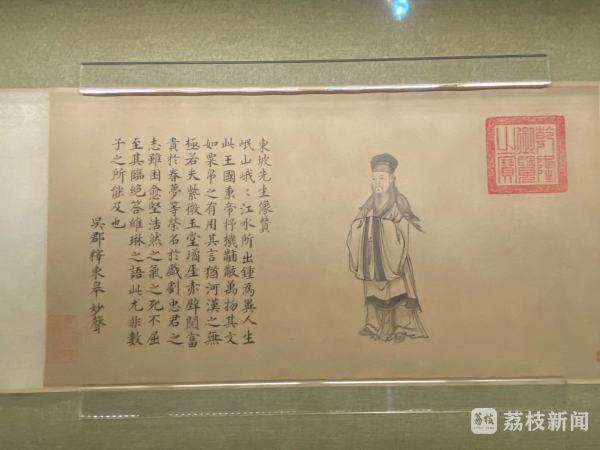 乾隆御覽之寶
東坡先生像贊
岷山峩〻江水所出鍾為異人生
此王國秉帝杼機黼黻萬物其文
如粟帛之有用其言猶河漢之無
極若夫紫微玉堂瓊厓赤壁閱富
貴於春夢等榮名於戲劇忠君之
志雖困愈堅浩然之氣之死不屈
至其臨絕答維琳之語此尤非數
子之所能及也
吳郡釋東皋妙聲
荔枝
荔枝新闻